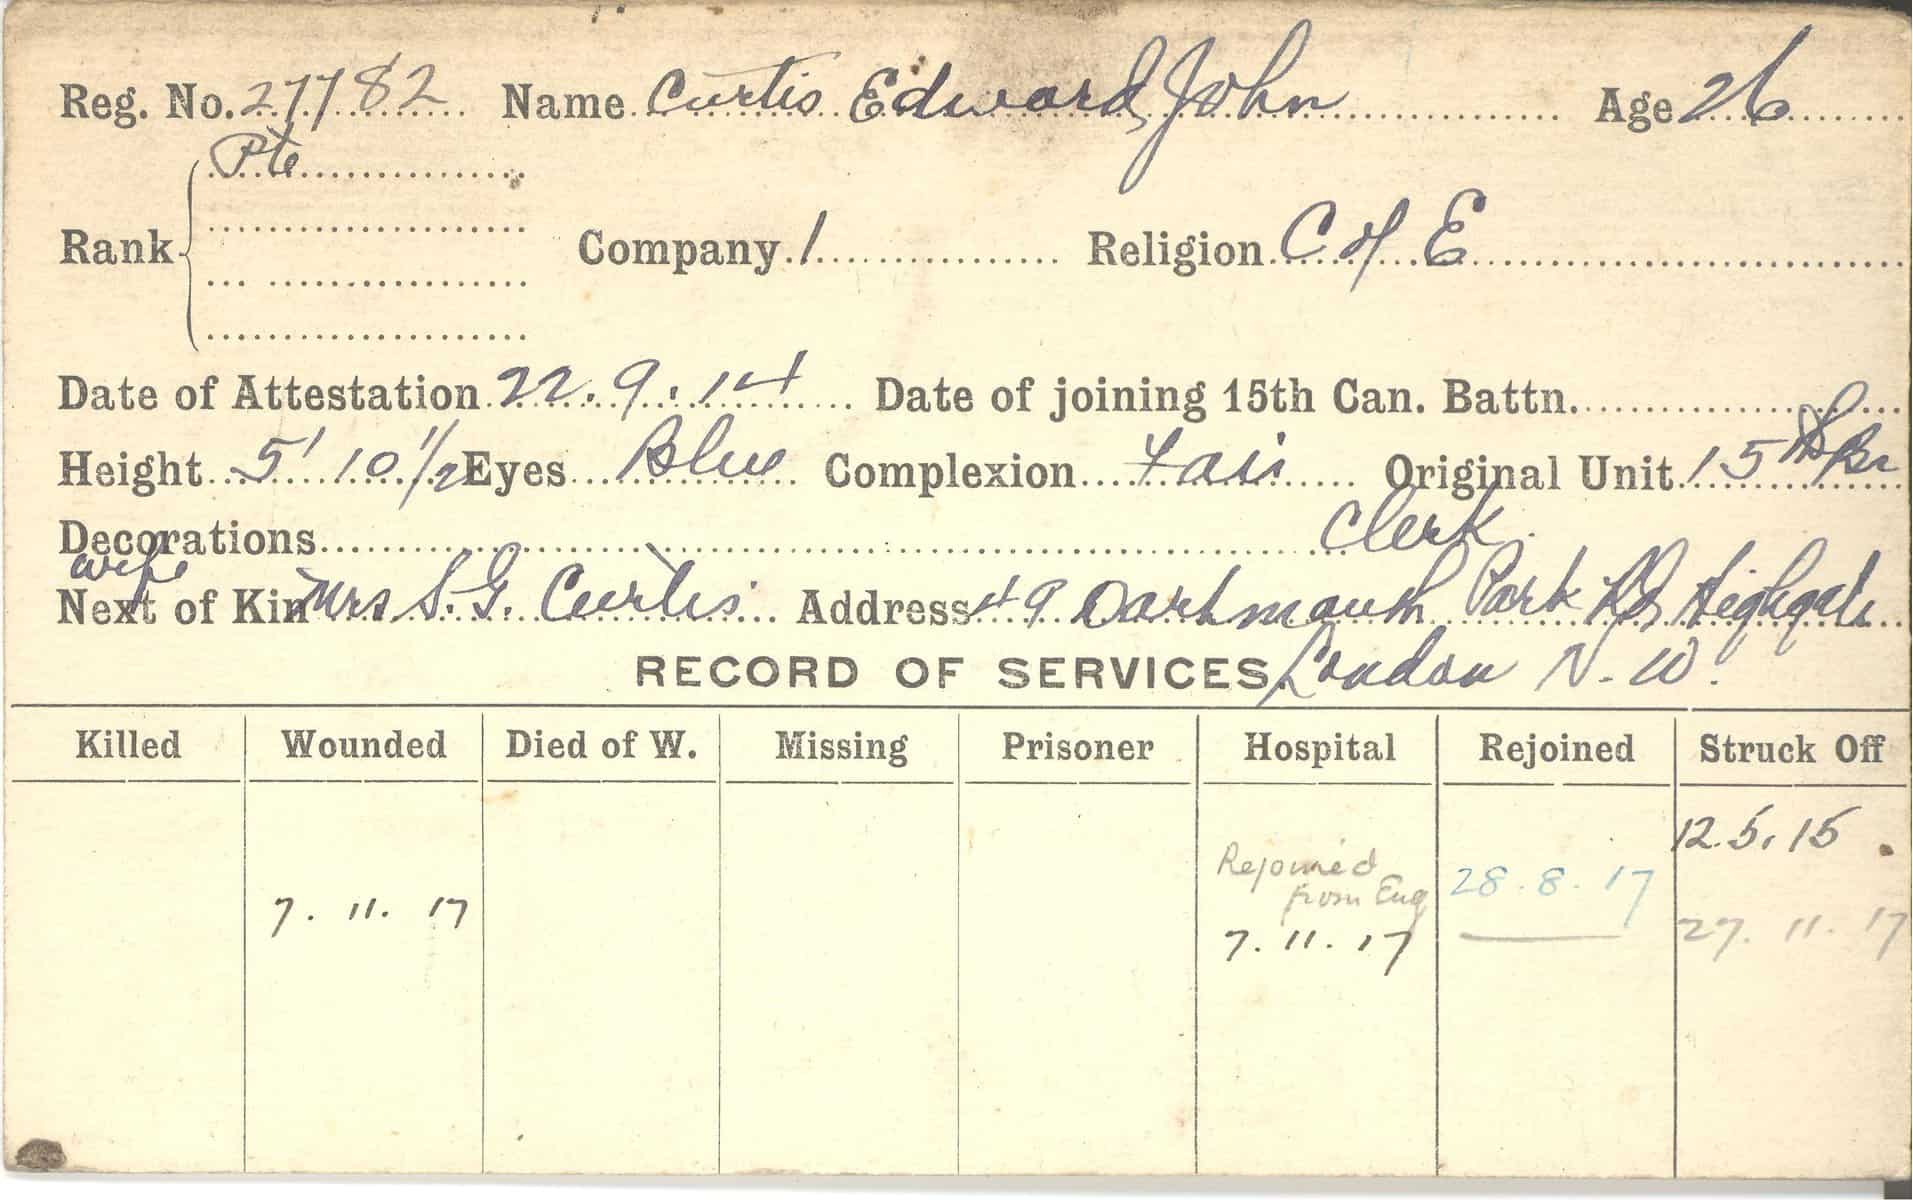 Reg. No. 27782 Name Curtis Edward John Age 26
Pte
Rank Company 1 Religion C of E
Date of Attestation 22.9.14 Date of joining 15th Can. Battn.
Height 5' 10 1/2 Eyes Blue Complexion Fair Original Unit 15th Bn
Decorations Clerk.
wife
Next of Kin Mrs S.G. Curtis Address 49 Dartmouth Park Rd Highgate
RECORD OF SERVICES. London N.W.
Killed Wounded Died of W. Missing Prisoner Hospital Rejoined Struck Off
12.5.15.
Rejoined from Eng 28.8.17
7.11.17 7.11.17 27.11.17